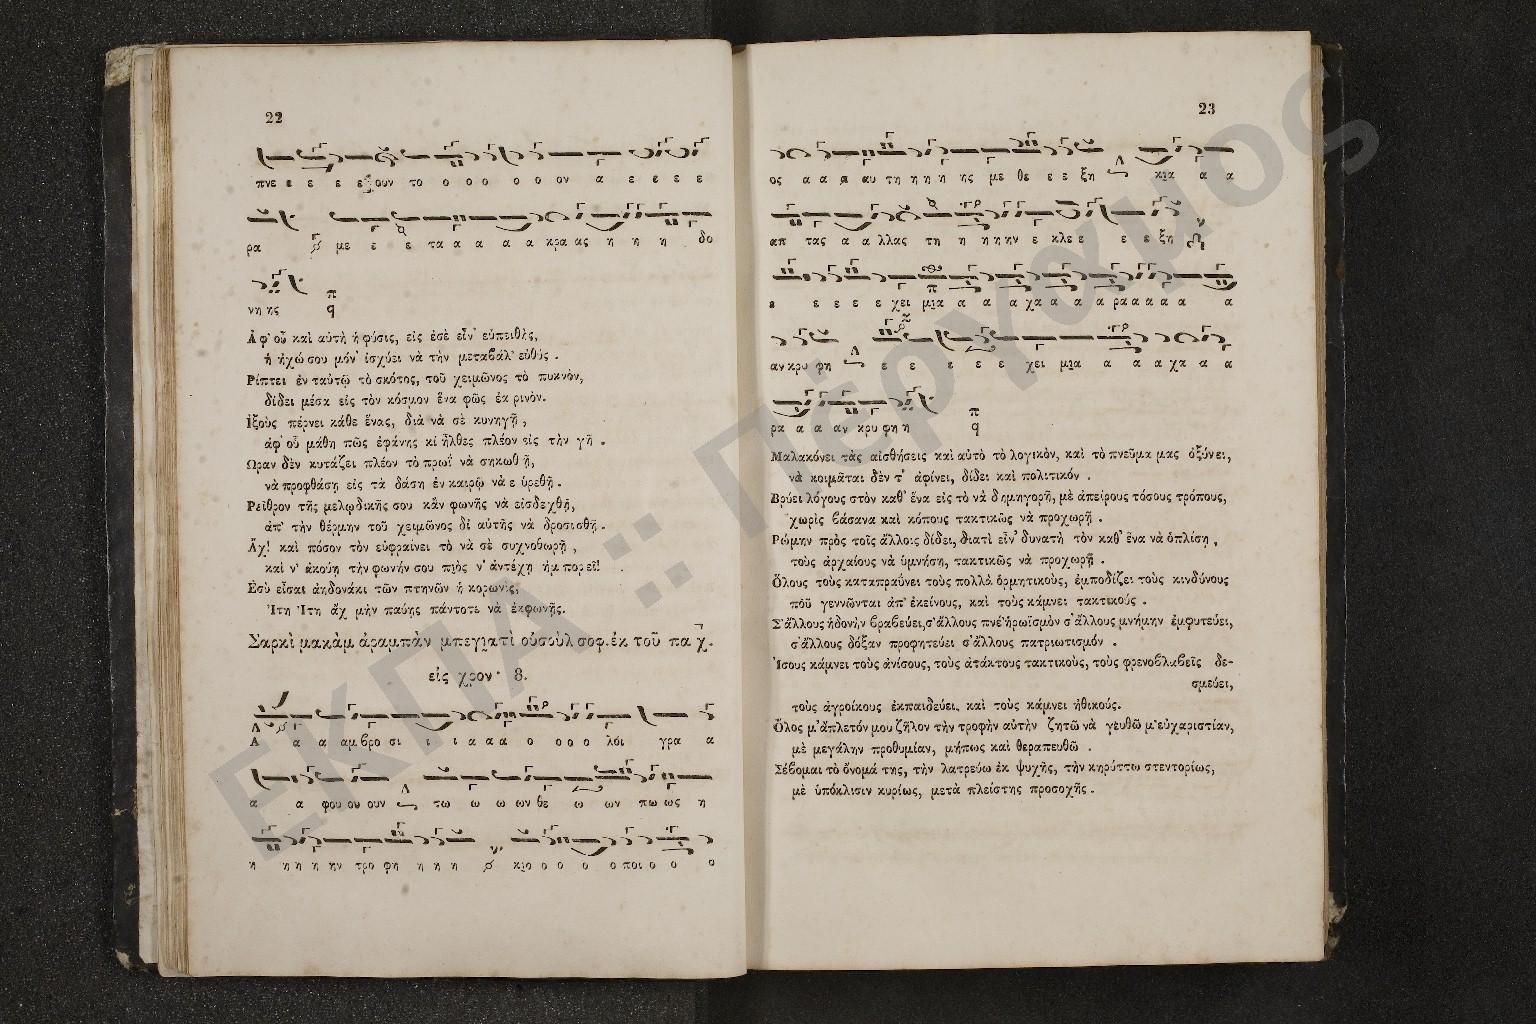 22
πνε ε ε ε ε ουν το ο ο ο ο ο ον α ε ε ε ε
ρα με ε ε τα α α α α κρα ας η η η δο
νη ης
Ἀφ' οὗ καὶ αὐτὴ ἡ φύσις, εἰς ἐσὲ εἶν' εὐπειθὴς,
ἡ ἠχώ σου μόν' ἰσχύει νὰ τὴν μεταβάλ' εὐθύς.
Ρίπτει ἐν ταὐτῷ τὸ σκότος, τοῦ χειμῶνος τὸ πυκνὸν,
δίδει μέσα εἰς τὸν κόσμον ἕνα φῶς ἐκρινόν.
Ἰξοὺς πέρνει κάθε ἕνας, διὰ νὰ σὲ κυνηγῇ,
ἀφ' οὗ μάθῃ πῶς ἐφάνης κἰ ἦλθες πλέον εἰς τὴν γῆ.
Ωραν δὲν κυτάζει πλέον τὸ πρωῒ νὰ σηκωθῇ,
νὰ προφθάσῃ εἰς τὰ δάση ἐν καιρῷ νὰ εὑρεθῇ.
Ρεῖθρον τῆς μελῳδικῆς σου κἂν φωνῆς νὰ εἰσδεχθῇ,
ἀπ' τὴν θέρμην τοῦ χειμῶνος δι αὐτῆς νὰ δροσισθῇ.
Ἄχ! καὶ πόσον τὸν εὐφραίνει τὸ νὰ σὲ συχνοθωρῇ,
καὶ ν' ἀκούῃ τὴν φωνήν σου πιὸς ν' ἀντέχῃ ἠμπορεῖ!
Ἐσὺ εἶσαι ἀηδονάκι τῶν πτηνῶν ἡ κορωνὶς,
Ἴτη Ἴτη ἄχ μὴν παύῃς πάντοτε νὰ ἐκφωνῇς.
Σαρκὶ μακὰμ ἀραμπὰν μπεγιατὶ οὐσοὺλ σοφ. ἐκ τοῦ πα χ.
εἰς χρον· 8.
Α α α αμ βρο σι ι ι α α α ο ο ο ο λόι γρα α
α α φου ου ουν τω ω ω ων θε ω ων πω ως η
η η η η ην τρο φη η η η κιο ο ο ο ο ποι ο ο ο
23
ος α α α αυ τη η η η ης με θε ε ε ξη κια α α
απ τας α α λλας τη η η η ην ε κλε ε ε ε ξη
ε ε ε ε ε χει μια α α α χα α α α ρα α α α α α
αν κρυ φη ε ε ε ε ε χει μια α α α χα α α
ρα α α αν κρυ φη η
Μαλακόνει τὰς αἰσθήσεις καὶ αὐτὸ τὸ λογικὸν, καὶ τὸ πνεῦμα μας ὀξύνει,
νὰ κοιμᾶται δὲν τ' ἀφίνει, δίδει καὶ πολιτικόν.
Βρύει λόγους στὸν καθ' ἕνα εἰς τὸ νὰ δημηγορῇ, μὲ ἀπείρους τόσους τρόπους,
χωρὶς βάσανα καὶ κόπους τακτικῶς νὰ προχωρῇ.
Ρώμην πρὸς τοῖς ἄλλοις δίδει, διατὶ εἶν' δυνατὴ τὸν καθ' ἕνα νὰ ὁπλίσῃ,
τοὺς ἀρχαίους νὰ ὑμνήσῃ, τακτικῶς νὰ προχωρῇ.
Ὅλους τοὺς καταπραΰνει τοὺς πολλὰ ὁρμητικοὺς, ἐμποδίζει τοὺς κινδύνους
ποῦ γεννῶνται ἀπ' ἐκείνους, καὶ τοὺς κάμνει τακτικούς.
Σ' ἄλλους ἡδονὴν βραβεύει, σ' ἄλλους πνέ' ἡρωϊσμὸν σ' ἄλλους μνήμην ἐμφυτεύει,
σ' ἄλλους δόξαν προφητεύει σ' ἄλλους πατριωτισμόν.
Ἴσους κάμνει τοὺς ἀνίσους, τοὺς ἀτάκτους τακτικοὺς, τοὺς φρενοβλαβεῖς δε-
σμεύει,
τοὺς ἀγροίκους ἐκπαιδεύει, καὶ τοὺς κάμνει ἠθικούς.
Ὅλος μ' ἄπλετόν μου ζῆλον τὴν τροφὴν αὐτὴν ζητῶ νὰ γευθῶ μ' εὐχαριστίαν,
μὲ μεγάλην προθυμίαν, μήπως καὶ θεραπευθῶ.
Σέβομαι τὸ ὄνομά της, τὴν λατρεύω ἐκ ψυχῆς, τὴν κηρύττω στεντορίως,
μὲ ὑπόκλισιν κυρίως, μετὰ πλείστης προσοχῆς.
ΕΚΠΑ :: Πέργαμος